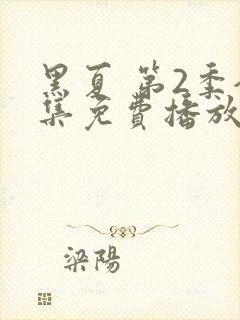 黑夏 第2季
集免费播放
梁陽